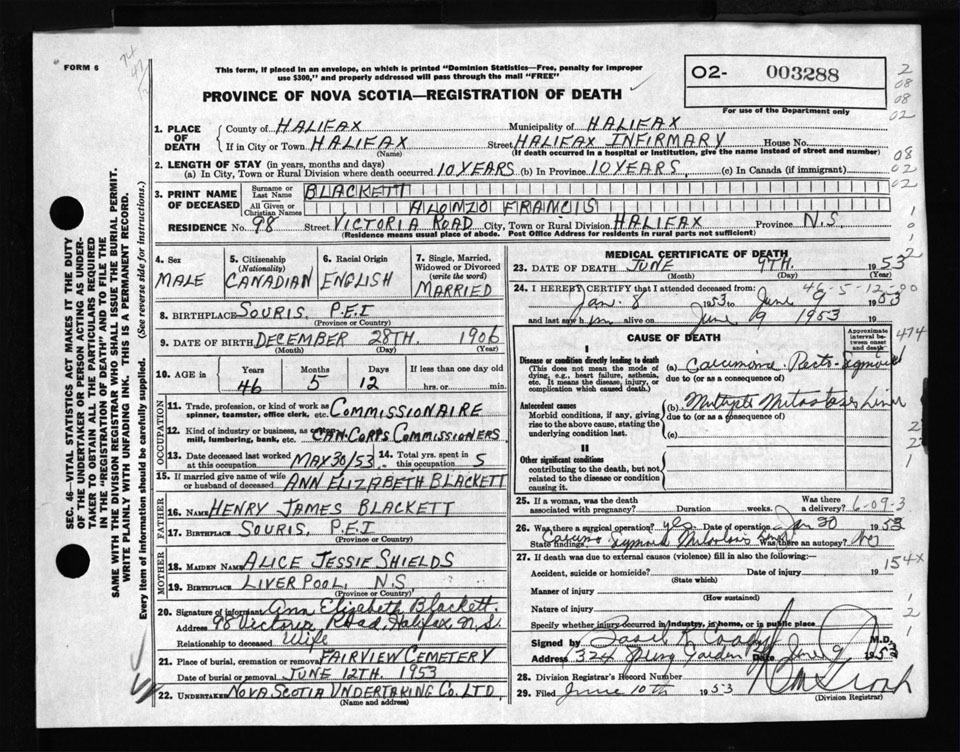 FORM 6
This form, if placed in an envelope, on which is printed "Dominion Statistics—Free, penalty for improper
use $300," and properly addressed will pass through the mail "FREE"
PROVINCE OF NOVA SCOTIA—REGISTRATION OF DEATH
O2- 003288
For use of the Department only
1. PLACE OF DEATH
County of HALIFAX Municipality of HALIFAX
If in City or Town HALIFAX Street HALIFAX INFIRMARY House No.
(Name) (If death occurred in a hospital or institution, give the name instead of street and number)
2. LENGTH OF STAY (in years, months and days)
(a) In City, Town or Rural Division where death occurred 10 YEARS (b) In Province 10 YEARS (c) In Canada (if immigrant)
3. PRINT NAME OF DECEASED
Surname or Last Name BLACKETT
All Given or Christian Names ALONZO FRANCIS
RESIDENCE No. 98 Street VICTORIA ROAD City, Town or Rural Division HALIFAX Province N.S.
(Residence means usual place of abode. Post Office Address for residents in rural parts not sufficient)
4. Sex MALE
5. Citizenship (Nationality) CANADIAN
6. Racial Origin ENGLISH
7. Single, Married, Widowed or Divorced (write the word) MARRIED
8. BIRTHPLACE SOURIS, P.E.I
(Province or Country)
9. DATE OF BIRTH DECEMBER 28TH. 1906
(Month) (Day) (Year)
10. AGE in Years 46 Months 5 Days 12 If less than one day old hrs. or min.
OCCUPATION
11. Trade, profession, or kind of work as spinner, teamster, office clerk, etc. COMMISSIONAIRE
12. Kind of industry or business, as cotton mill, lumbering, bank, etc. CAN. CORPS COMMISSIONERS
13. Date deceased last worked at this occupation MAY 30/53
14. Total yrs. spent in this occupation 5
15. If married give name of wife or husband of deceased ANN ELIZABETH BLACKETT
FATHER
16. NAME HENRY JAMES BLACKETT
17. BIRTHPLACE SOURIS, P.E.I
(Province or Country)
MOTHER
18. MAIDEN NAME ALICE JESSIE SHIELDS
19. BIRTHPLACE LIVERPOOL, N.S
(Province or Country)
20. Signature of informant Ann Elizabeth Blackett.
Address 98 Victoria Road, Halifax, N.S.
Relationship to deceased Wife
21. Place of burial, cremation or removal FAIRVIEW CEMETERY
Date of burial or removal JUNE 12TH. 1953
22. UNDERTAKER NOVA SCOTIA UNDERTAKING CO. LTD.
(Name and address)
MEDICAL CERTIFICATE OF DEATH
23. DATE OF DEATH JUNE 9TH. 1953
(Month) (Day) (Year)
46-5-12-00
24. I HEREBY CERTIFY that I attended deceased from:
Jan. 8 1953 to June 9 1953
and last saw him alive on June 9 1953 19
CAUSE OF DEATH
Approximate interval between onset and death
474
I
Disease or condition directly leading to death
(This does not mean the mode of dying, e.g., heart failure, asthenia, etc. It means the disease, injury, or complication which caused death.)
(a) Recto-Sigmoid
due to (or as a consequence of)
Antecedent causes
Morbid conditions, if any, giving rise to the above cause, stating the underlying condition last.
(b) Multiple Liver
due to (or as a consequence of)
(c)
II
Other significant conditions
contributing to the death, but not related to the disease or condition causing it.
25. If a woman, was the death associated with pregnancy? Duration weeks. Was there a delivery?
6-09-3
26. Was there a surgical operation? yes Date of operation Jan 20 1953
State findings Was there an autopsy? No
27. If death was due to external causes (violence) fill in also the following:—
Accident, suicide or homicide? Date of injury 19
(State which)
154X
Manner of injury
(How sustained)
Nature of injury
Specify whether injury occurred in industry, in home, or in public place
Signed by M.D.
Address 324 Spring Garden Rd Date June 9 1953
28. Division Registrar's Record Number
29. Filed June 10th 1953
(Division Registrar)
SEC. 46—VITAL STATISTICS ACT MAKES IT THE DUTY
OF THE UNDERTAKER OR PERSON ACTING AS UNDER-
TAKER TO OBTAIN ALL THE PARTICULARS REQUIRED
IN THE "REGISTRATION OF DEATH" AND TO FILE THE
SAME WITH THE DIVISION REGISTRAR WHO SHALL ISSUE THE BURIAL PERMIT.
WRITE PLAINLY WITH UNFADING INK. THIS IS A PERMANENT RECORD.
Every item of information should be carefully supplied. (See reverse side for instructions.)